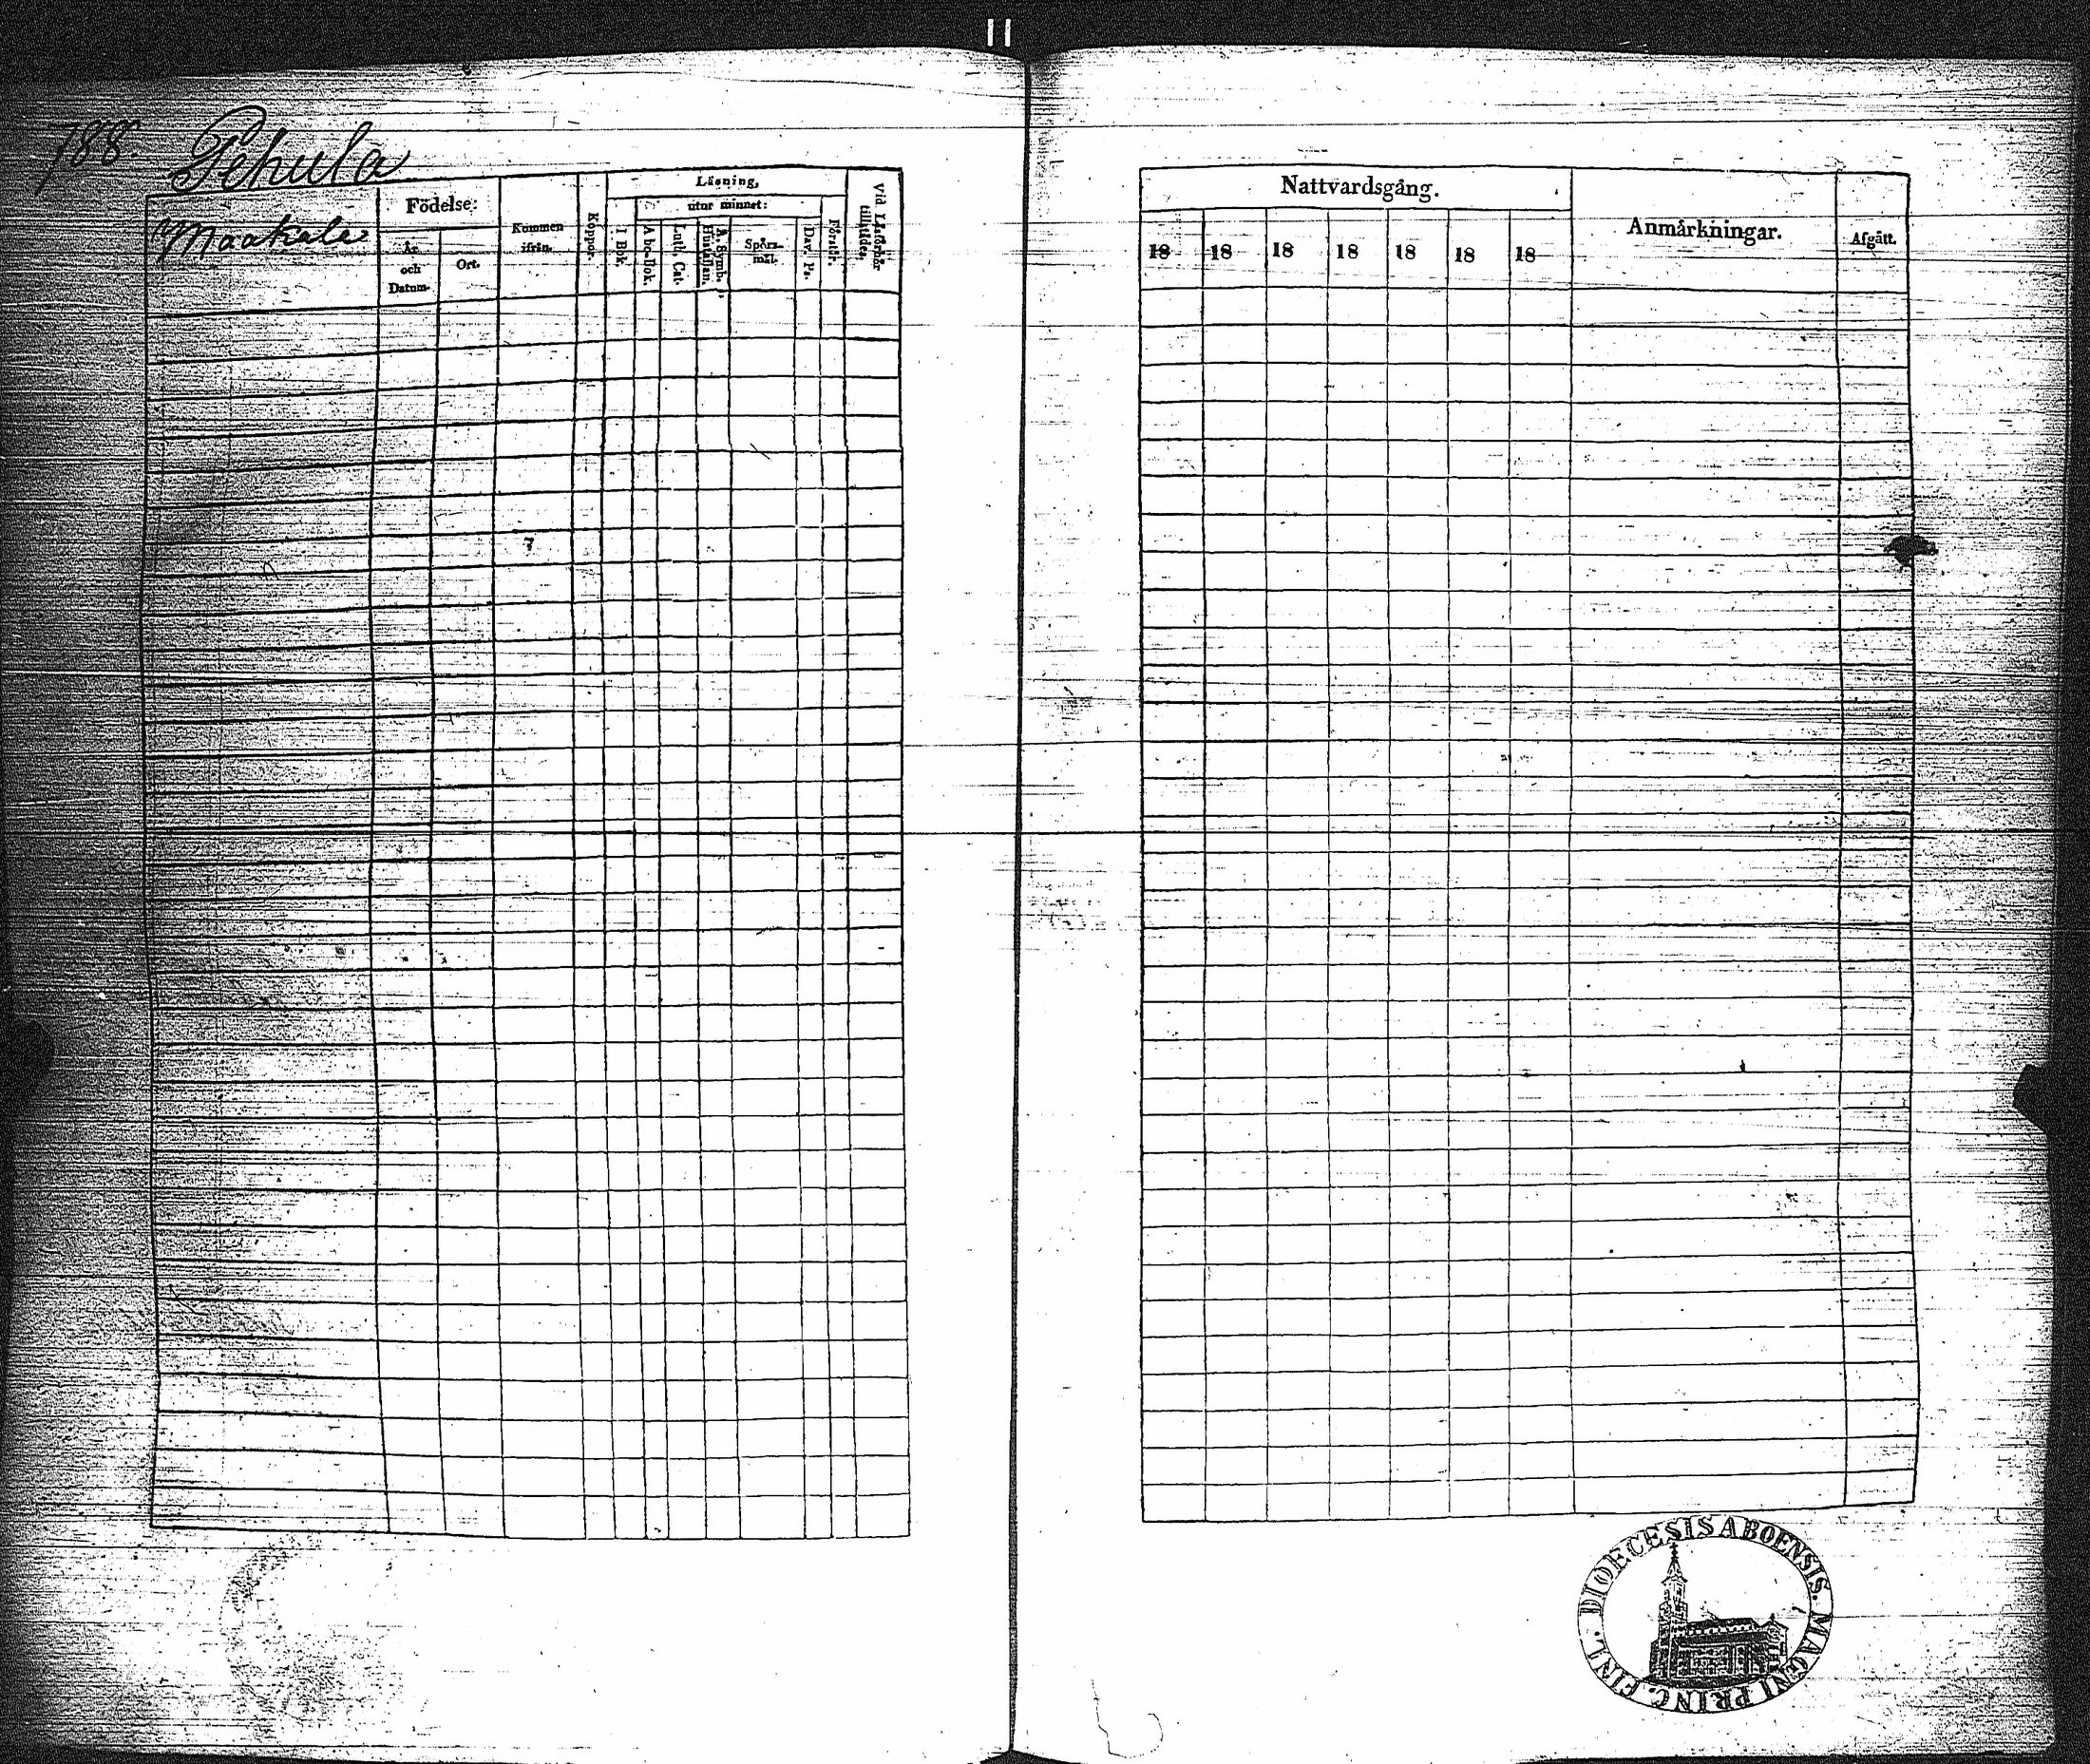 188.
Pehula
Maakala
Födelse:
År
och
Datum.
Ort.
Kommen
ifrån.
Koppor.
Läsning,
utur minnet:
I Bok.
A bc.Bok.
Luth. Cat.
A. Symb.
Hustaflan.
Spörs-
mål.
Dav. Ps.
Förstår.
Vid Läsförhör
tillstädes.
Nattvardsgång.
18 18 18 18 18 18 18
Anmärkningar.
Afgått.
DIOECESIS ABOENSIS. MAGNI PRINC. FINL.